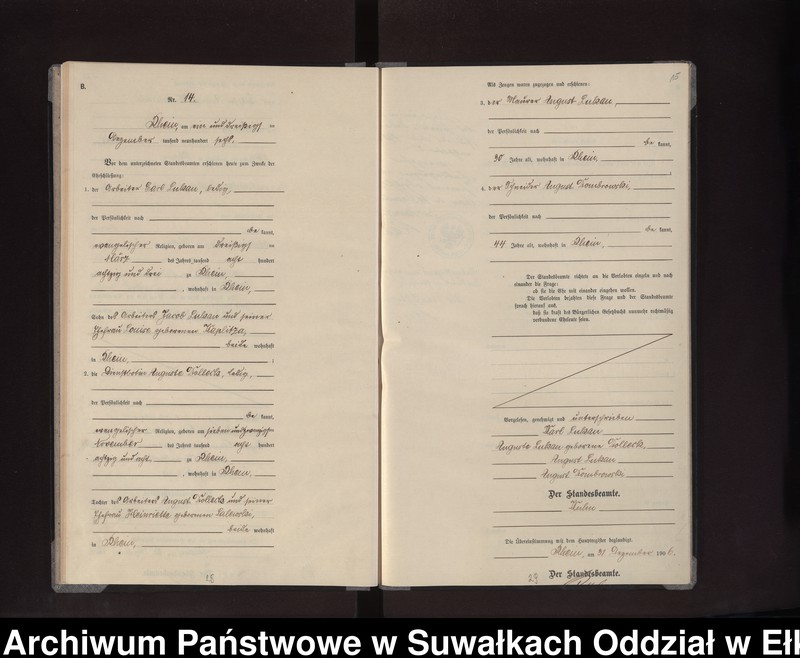 B.
Nr. 14.
Rhein, am ein und dreißigst en
Dezember tausend neunhundert sechs.
Vor dem unterzeichneten Standesbeamten erschienen heute zum Zwecke der
Eheschließung:
1. der Arbeiter Carl Lukau, ledig,
der Persönlichkeit nach
be kannt,
evangelischer Religion, geboren am dreißigst en
März des Jahres tausend acht hundert
achtzig und drei zu Rhein,
, wohnhaft in Rhein,
Sohn des Arbeiters Jacob Lukau und seiner
Ehefrau Louise geborenen
beide wohnhaft
in Rhein, ;
2. die Dienstbotin Auguste ledig,
der Persönlichkeit nach
be kannt,
evangelischer Religion, geboren am sieben und zwanzigsten
November des Jahres tausend acht hundert
achtzig und acht zu Rhein,
, wohnhaft in Rhein,
Tochter des Arbeiters August und seiner
Ehefrau Heinriette geborenen
beide wohnhaft
in Rhein,
18
15
Als Zeugen waren zugezogen und erschienen:
3. der Maurer August Lukau,
der Persönlichkeit nach
be kannt,
30 Jahre alt, wohnhaft in Rhein,
4. der Schneider August Dombrowski,
der Persönlichkeit nach
be kannt,
44 Jahre alt, wohnhaft in Rhein,
Der Standesbeamte richtete an die Verlobten einzeln und nach
einander die Frage:
ob sie die Ehe mit einander eingehen wollen.
Die Verlobten bejahten diese Frage und der Standesbeamte
sprach hierauf aus,
daß sie kraft des Bürgerlichen Gesetzbuchs nunmehr rechtmäßig
verbundene Eheleute seien.
Vorgelesen, genehmigt und unterschrieben
Karl Lukau
Auguste Lukau geborene
August Lukau
August Dombrowski
Der Standesbeamte.
Die Übereinstimmung mit dem Hauptregister beglaubigt.
Rhein, am 31. Dezember 190 6.
Der Standesbeamte.
29
Archiwum Państwowe w Suwałkach Oddział w Eł